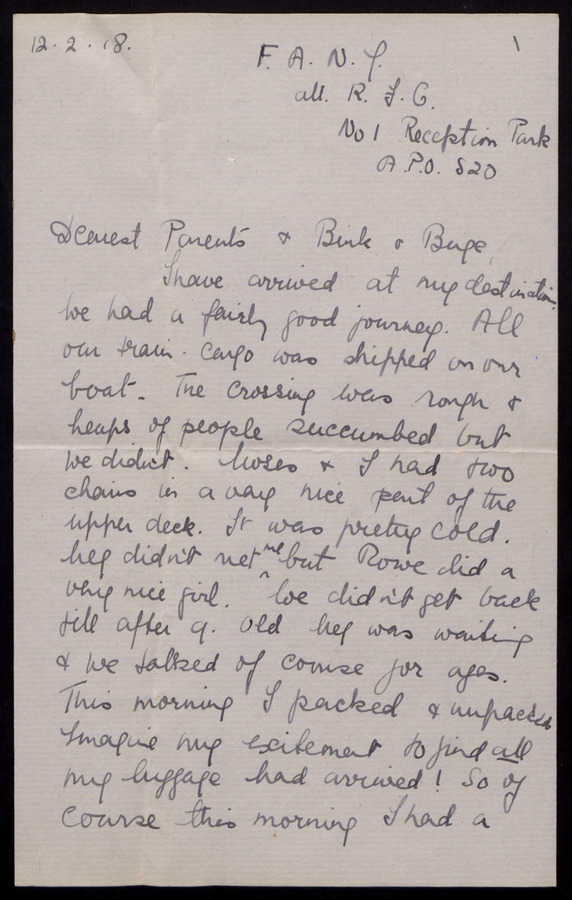 12.2.18.
1
F. A. N. Y.
att. R. F. C.
No 1 Reception Park
A.P.O. S20
Dearest Parents & Bink & Buge,
I have arrived at my destination.
We had a fairly good journey. All
our train cargo was shipped on our
boat. The crossing was rough &
heaps of people succumbed but
we didn't. Moses & I had two
chairs in a very nice part of the
upper deck. It was pretty cold.
Heg didn't met me but Rowe did a
very nice girl. We didn't get back
till after 9. Old Heg was waiting
& we talked of course for ages.
This morning I packed & unpacked
Imagine my excitement to find all
my luggage had arrived! So of
course this morning I had a